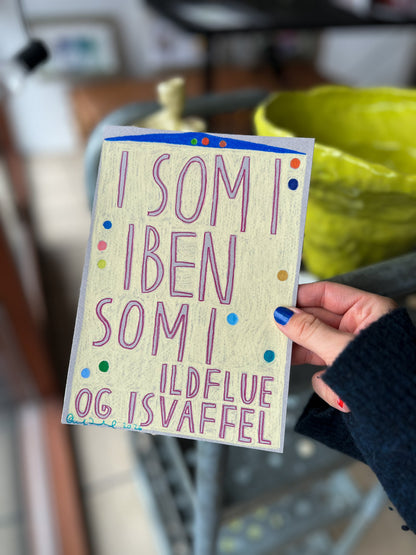 I SOM I
IBEN
SOM I
ILDFLUE
OG ISVAFFEL